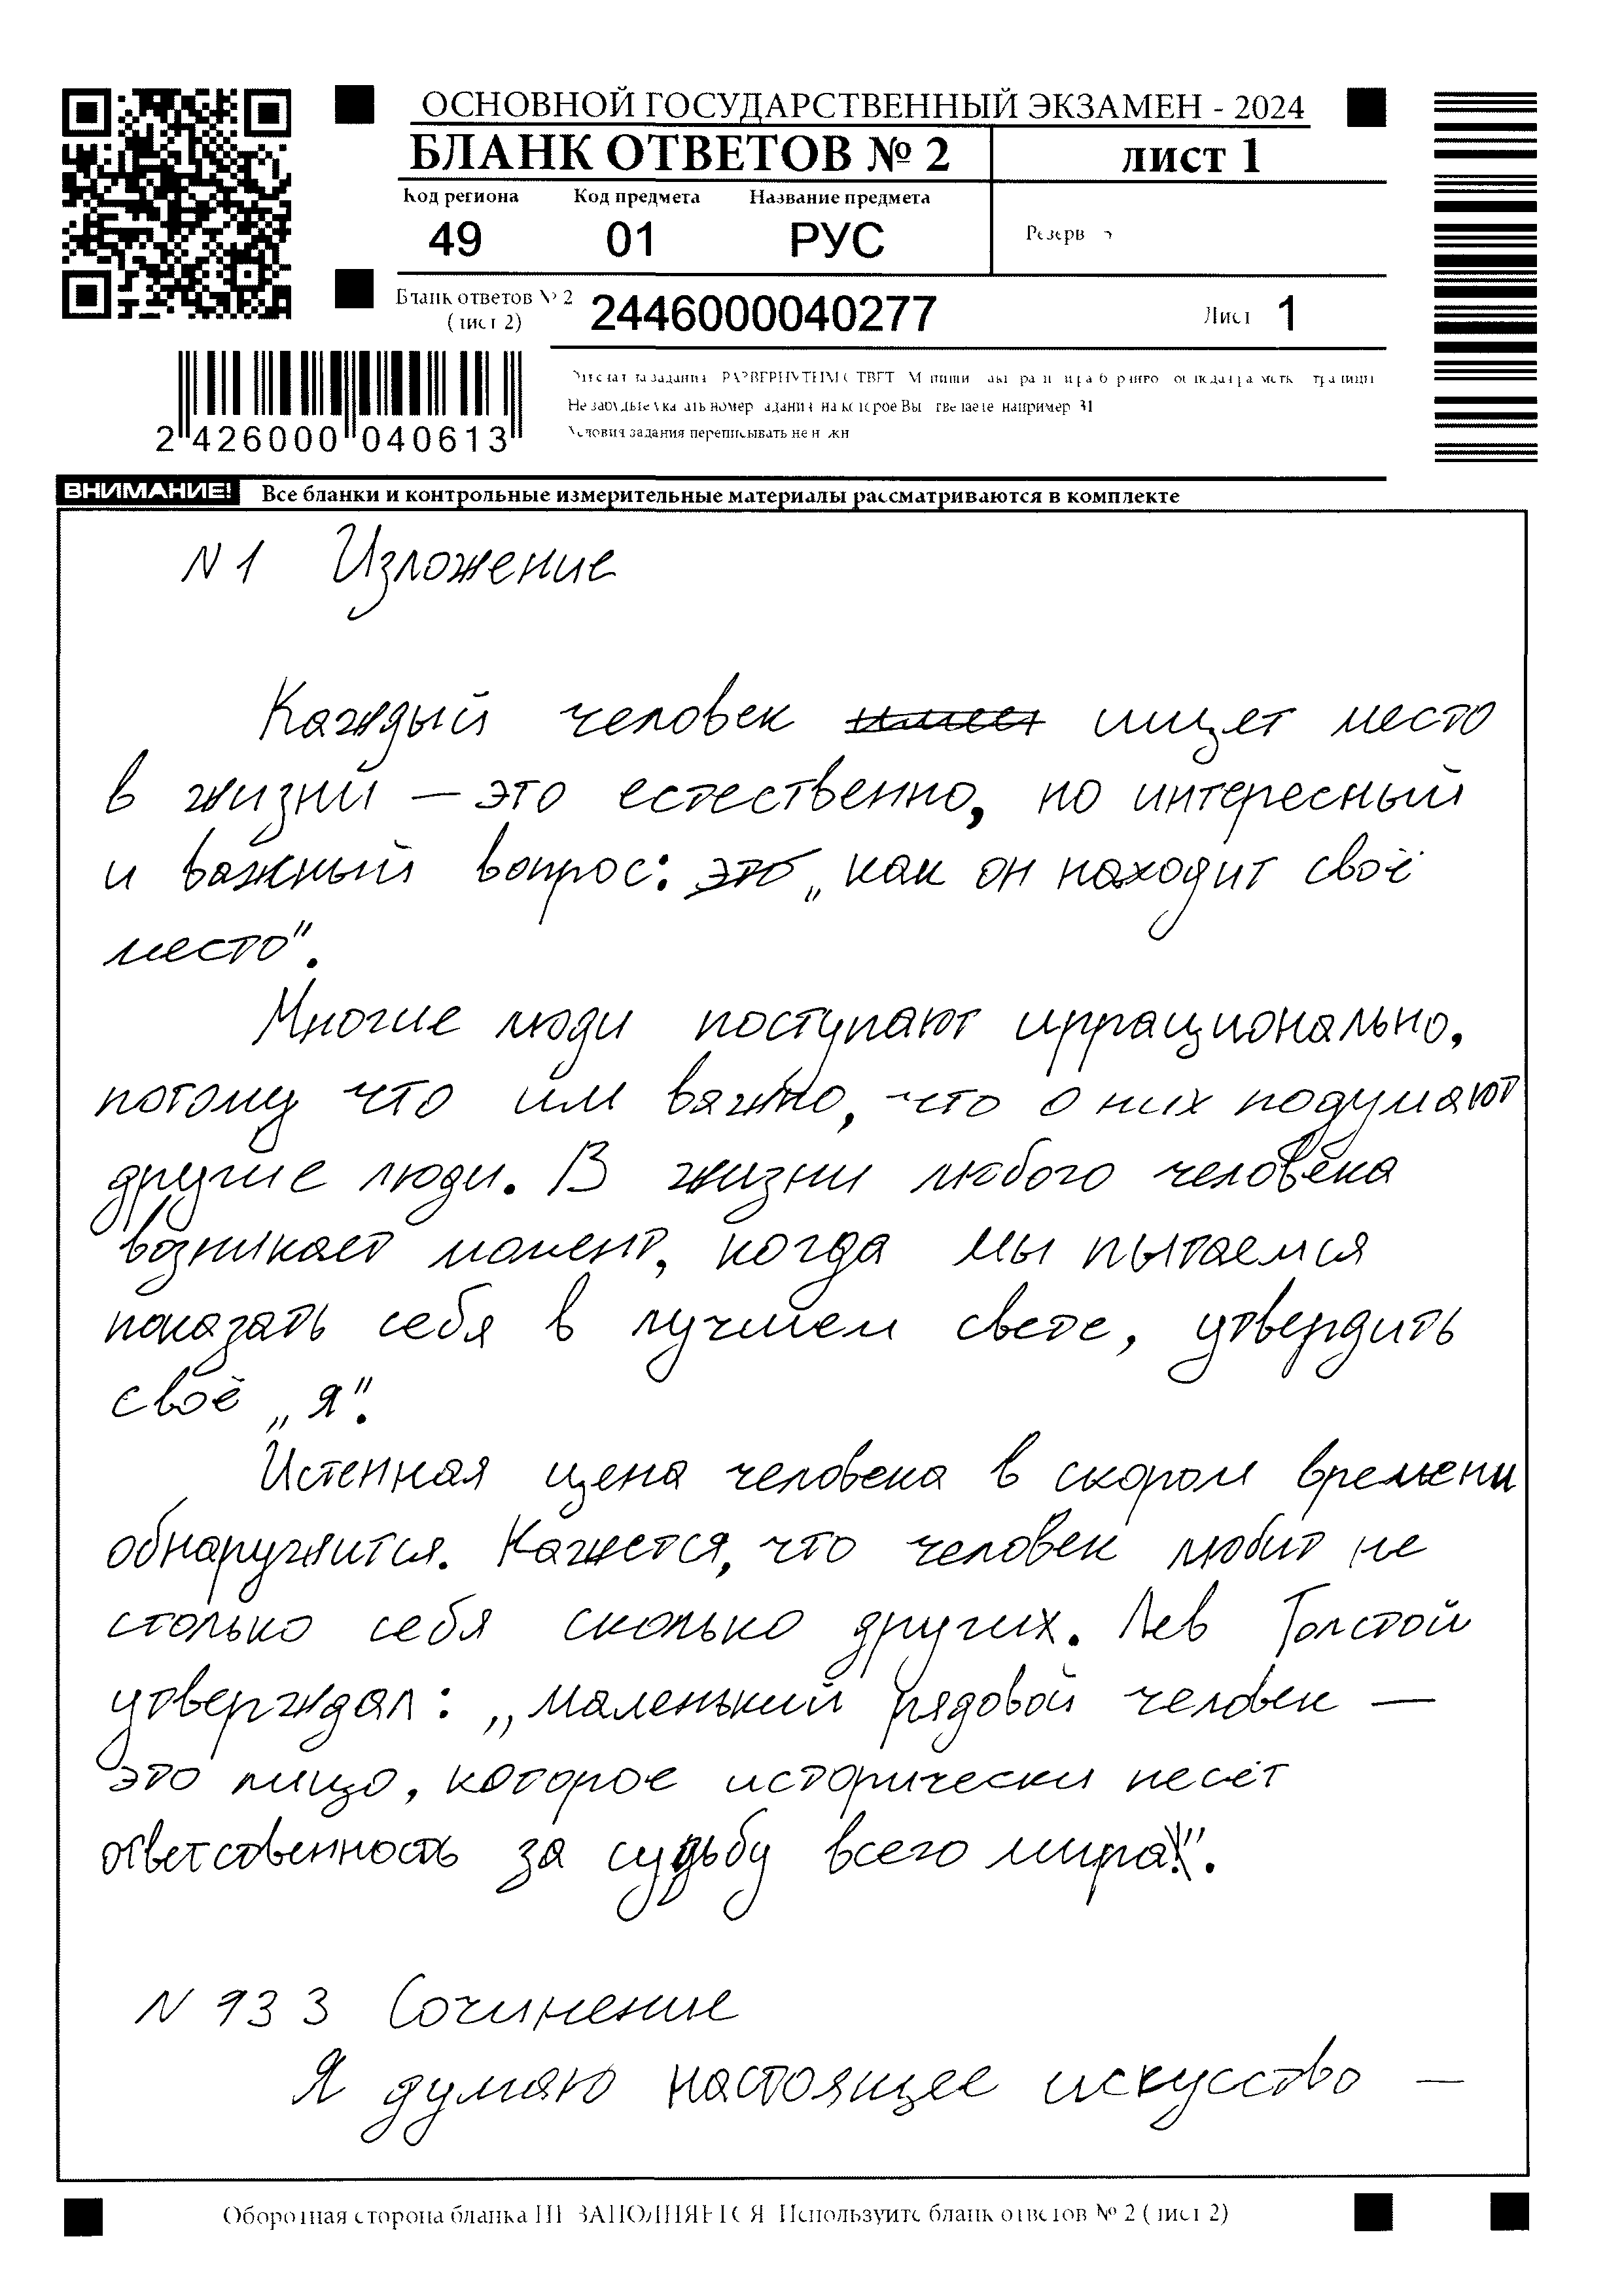 ОСНОВНОЙ ГОСУДАРСТВЕННЫЙ ЭКЗАМЕН - 2024
БЛАНК ОТВЕТОВ № 2
ЛИСТ 1
Код региона Код предмета Название предмета
49 01 РУС
Резерв
Бланк ответов № 2
(лист 2)
2446000040277
Лист 1
2 426000 040613
Условия задания переписывать не
ВНИМАНИЕ! Все бланки и контрольные измерительные материалы рассматриваются в комплекте
N 1 Изложение
Каждый человек имеет ищет место
в жизни — это естественно, но интересный
и важный вопрос: это „как он находит своё
место".
Многие люди поступают иррационально,
потому что им важно, что о них подумают
другие люди. В жизни любого человека
возникает момент, когда мы пытаемся
показать себя в лучшем свете, утвердить
своё „я".
Истенная цена человека в скором времени
обнаружится. Кажется, что человек любит не
столько себя сколько других. Лев Толстой
утверждал: „маленький рядовой человек —
это лицо, которое исторически несёт
ответсовенность за судьбу всего мира".
N 13 3 Сочинение
Я думаю настоящее искусство —
Оборотная сторона бланка НЕ ЗАПОЛНЯЕТСЯ Используйте бланк ответов № 2 (лист 2)